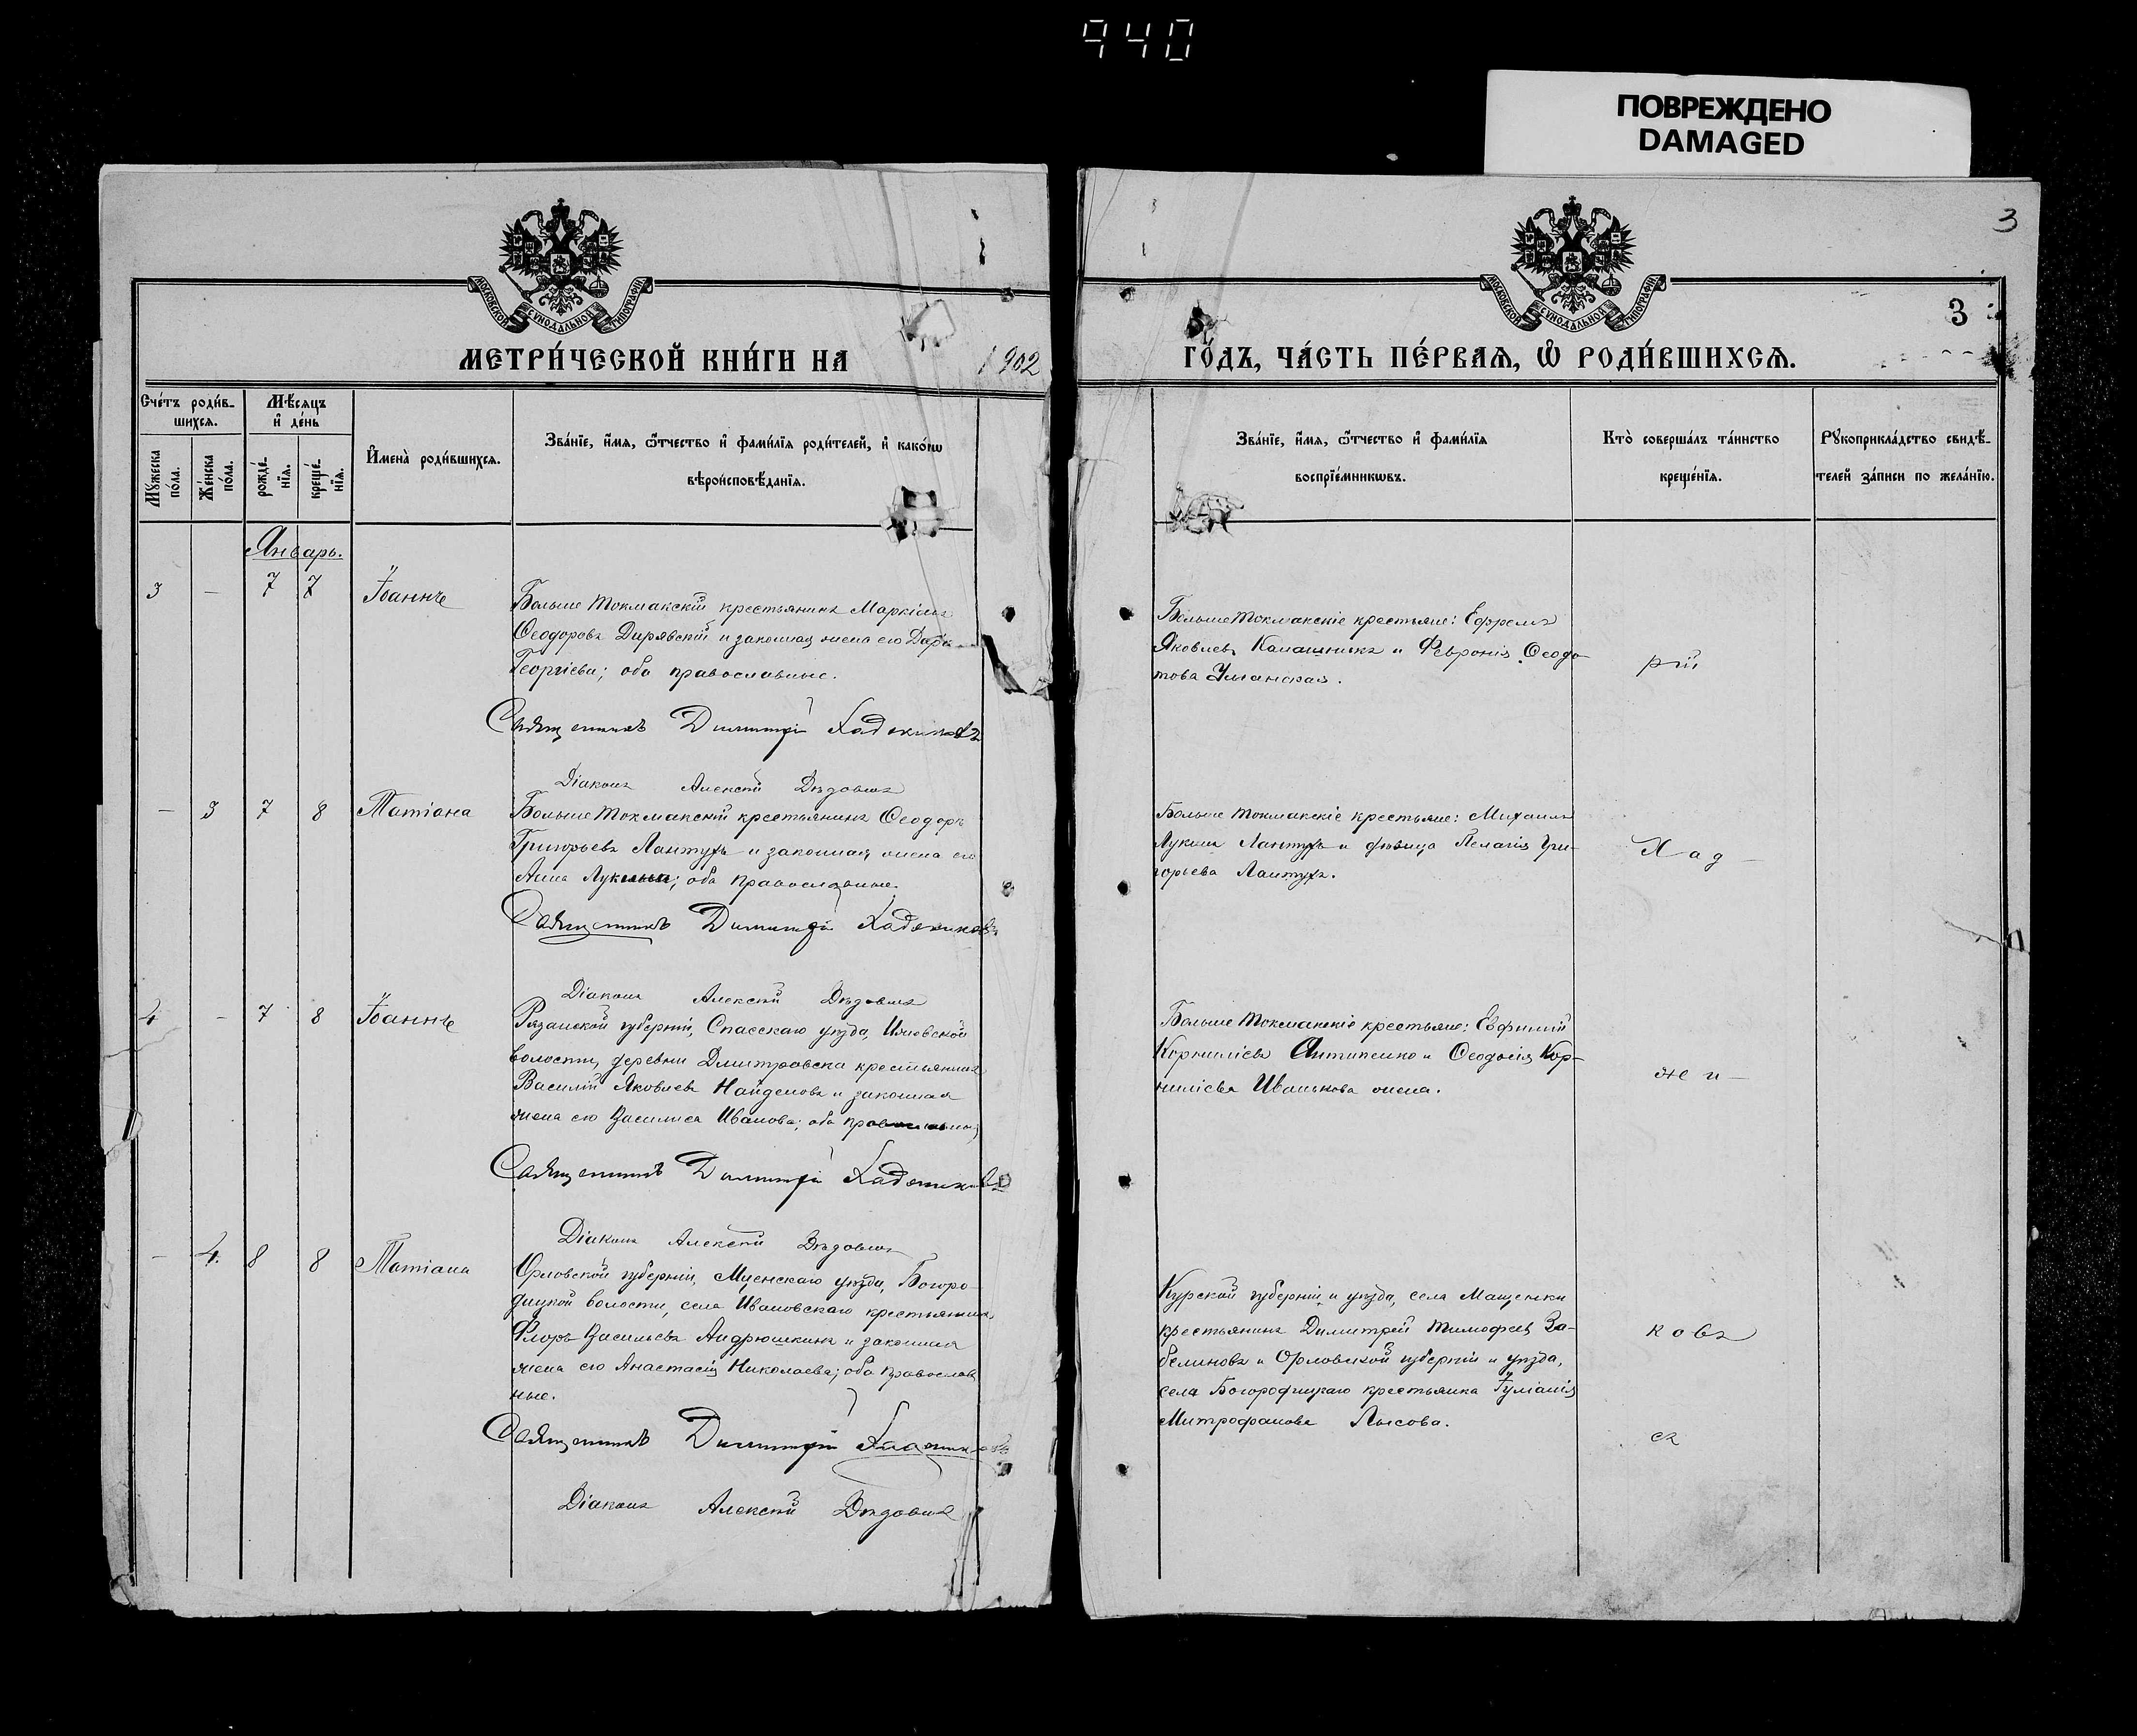 940
ПОВРЕЖДЕНО
DAMAGED
3
МОСКОВСКОЙ СѴНОДАЛЬНОЙ ТИПОГРАФІИ
МОСКОВСКОЙ СѴНОДАЛЬНОЙ ТИПОГРАФІИ
3
МЕТРИ́ЧЕСКОЙ КНИ́ГИ НА 1902
ГО́ДЪ, ЧА́СТЬ ПЕ́РВАѦ, Ѽ РОДИ́ВШИХСѦ.
Сче́тъ роди́в-
шихсѧ.
Мѣ́сѧцъ
и҆ де́нь
Мꙋ́жеска
по́ла.
Же́нска
по́ла.
рожде́-
нїѧ.
креще́-
нїѧ.
И҆мена̀ роди́вшихсѧ.
Зва́нїе, и҆́мѧ, ѻ҆́тчество и҆ фами́лїѧ роди́телей, и҆ како́гѡ
вѣроисповѣ́данїѧ.
Зва́нїе, и҆́мѧ, ѻ҆́тчество и҆ фами́лїѧ
воспрїе́мникѡвъ.
Кто̀ соверша́лъ та́инство
креще́нїѧ.
Рꙋкоприкла́дство свидѣ́-
телей за́писи по жела́нїю.
Январь.
3 — 7 7 Іоаннъ
Больше Токмакскій крестьянинъ Маркіанъ
Ѳеодоровъ Дирявскій и законная жена его Дарія
Георгіева; оба православные.
Священникъ Димитрій Хаджиновъ
Діаконъ Алексѣй
Больше Токмакскіе крестьяне: Ефремъ
Яковлевъ и Февронія Ѳеодо-
това Уманская.
рій
— 3 7 8 Татіана
Больше Токмакскій крестьянинъ Ѳеодоръ
Григорьевъ Лантухъ и законная жена его
Анна Лукина; оба православные.
Священникъ Димитрій Хаджиновъ
Діаконъ Алексѣй
Больше Токмакскіе крестьяне: Михаилъ
Лукинъ Лантухъ и дѣвица Пелагія Гри-
горьева Лантухъ.
Хад—
4 — 7 8 Іоаннъ
Рязанской губерніи, Спасскаго уѣзда, Ижевской
волости, деревни Дмитровска крестьянинъ
Василій Яковлевъ Найденовъ и законная
жена его Василиса Иванова; оба
Священникъ Димитрій Хаджиновъ
Діаконъ Алексѣй
Больше Токмакскіе крестьяне: Евфимій
Корниліевъ Антипенко и Ѳеодосія Кор-
ниліева Иванькова жена.
жи—
— 4. 8 8 Татіана
Орловской губерніи, Мценскаго уѣзда, Богоро-
дицкой волости, села Ивановскаго крестьянинъ
Флоръ Васильевъ Андрюшкинъ и законная
жена его Анастасія Николаева; оба православ
ные.
Священникъ Димитрій
Діаконъ Алексѣй
Курской губерніи и уѣзда, села Мащенки
крестьянинъ Димитрій Тимофеевъ За-
белиновъ и Орловской губерніи и уѣзда,
села Богородицкаго крестьянка Іуліанія
Митрофанова Лысова.
ковъ